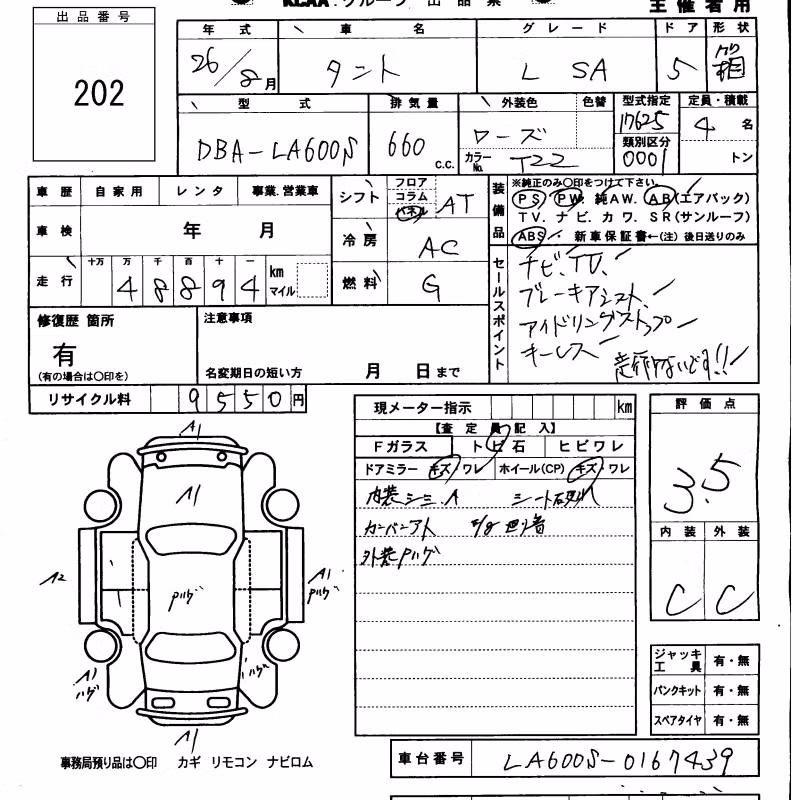 KCAA.グループ 出品票
主催者用
出品番号
202
年式 車名 グレード ドア 形状
26/8月 タント L SA 5 箱
型式 排気量 外装色 色替 型式指定 定員・積載
DBA-LA600S 660 c.c. ローズ 17625 4 名
カラーNo. T22 類別区分 0001 トン
車歴 自家用 レンタ 事業.営業車
車検 年 月
走行 十万 万 千 百 十 一
4 8 8 9 4 km マイル
シフト フロア コラム パネル AT
冷房 AC
燃料 G
装備品
※純正のみ〇印をつけて下さい。
PS PW 純AW. AB(エアバック)
TV. ナビ. カワ. SR(サンルーフ)
ABS 新車保証書←(注) 後日送りのみ
セールスポイント
ナビ、TV、
ブレーキアシスト、
アイドリングストップ
キーレス
走行少ないです!!
修復歴 箇所
有
(有の場合は〇印を)
注意事項
名変期日の短い方 月 日まで
リサイクル料 9550円
現メーター指示 km
【査定員記入】
Fガラス トビ石 ヒビワレ
ドアミラー キズ/ワレ ホイール(CP) キズ/ワレ
内装シミ.A シート
外装Pハゲ
評価点
3.5
内装 外装
C C
ジャッキ工具 有・無
パンクキット 有・無
スペアタイヤ 有・無
A1
A1
A2
Pハゲ
A1
Pハゲ
A1
ハゲ
ハゲ
A1
事務局預り品は〇印 カギ リモコン ナビロム
車台番号 LA600S-0167439